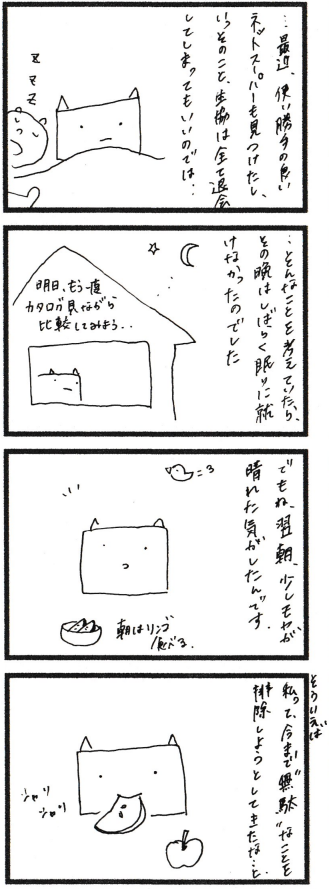 …最近、使い勝手の良い
ネットスーパーも見つけたし、
いっそのこと、生協は全て退会
してしまってもいいのでは…
z
z
z
…そんなことを考えていたら、
その晩はしばらく眠りに就
けなかったのでした
明日、もう一度
カタログ見ながら
比較してみよう..
でもね、翌朝、少しモヤが
晴れた気がしたんです.
=3
朝はリンゴ
食べる.
そういえば
私って、今まで“無駄”なことを
排除しようとしてきたな…と.
シャリ
シャリ